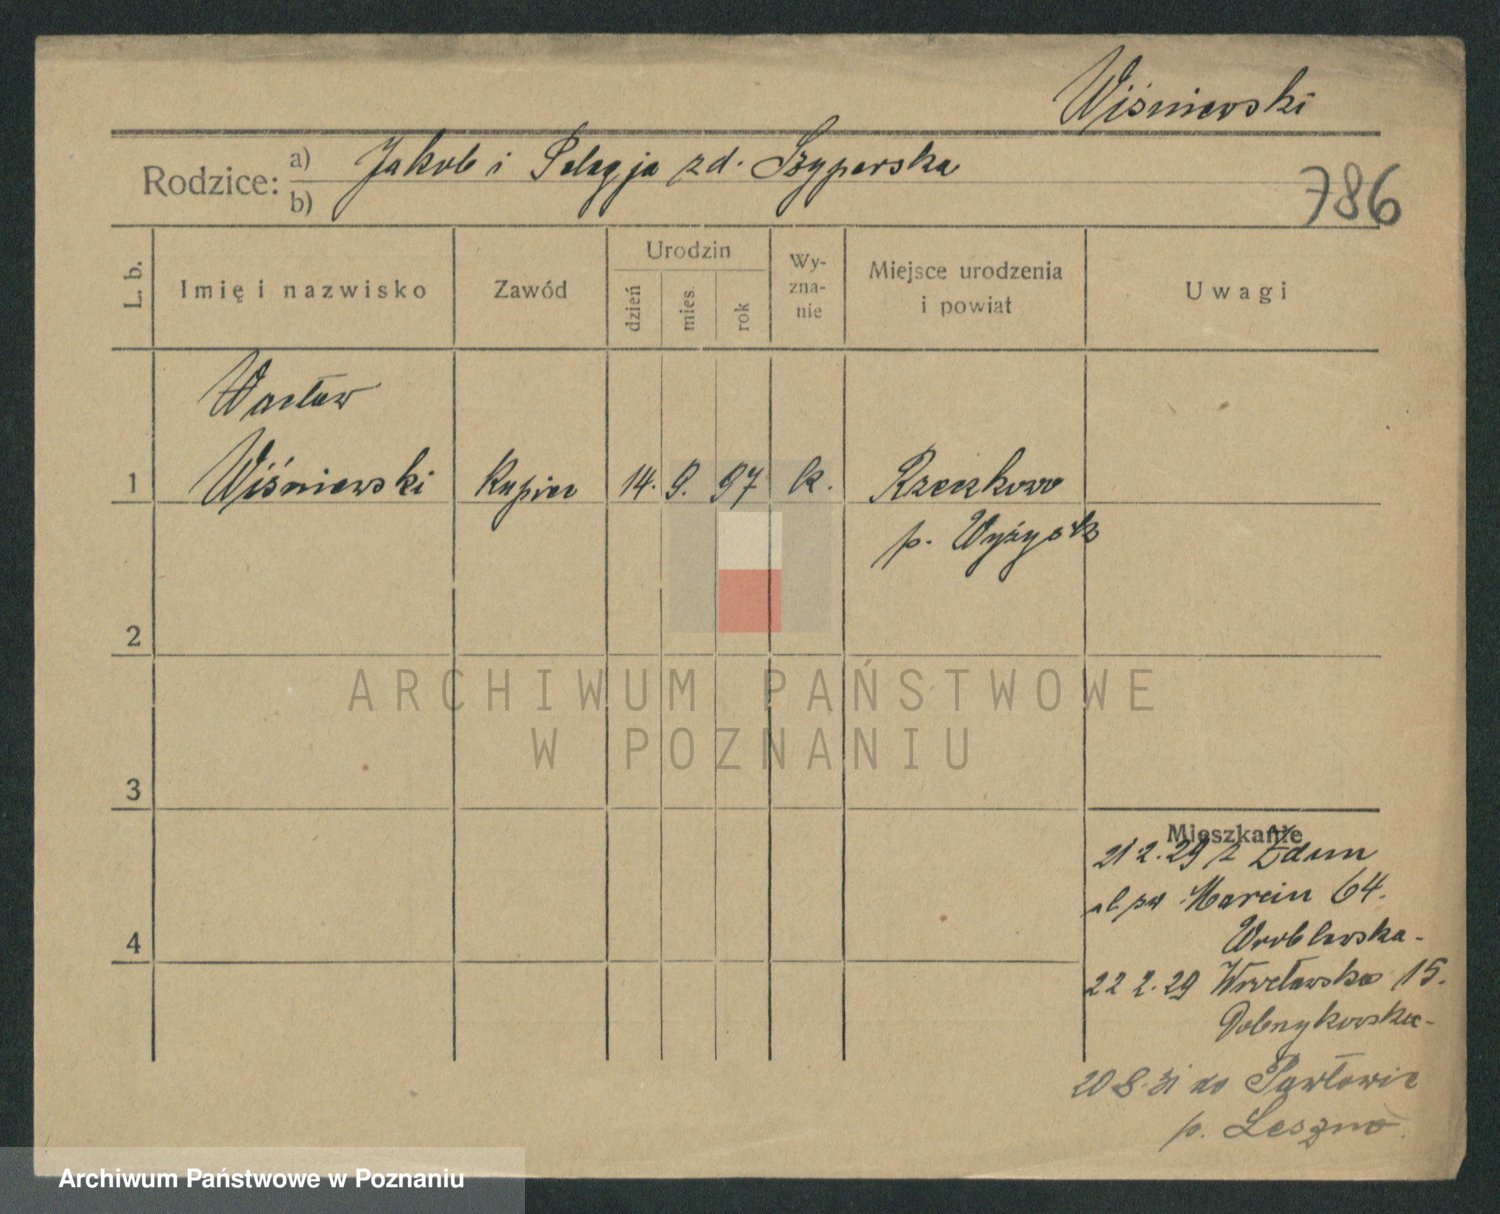 Wiśniewski
Rodzice: a) Jakob i Pelagja zd. Szyperska
b)
786
L. b.
Imię i nazwisko
Zawód
Urodzin
dzień
mies.
rok
Wy-
zna-
nie
Miejsce urodzenia
i powiat
Uwagi
Wacław
1 Wiśniewski Kupiec 14. 9. 97 k. Rzeszkowo
p. Wyżysk
2
3
4
Mieszkanie
21 2.29 z Zdun
św Marcin 64.
Wroblewska.
22 2.29 Wrocławska 15.
20 8.31 do Pawłowic
p. Leszno.
ARCHIWUM PAŃSTWOWE
W POZNANIU
Archiwum Państwowe w Poznaniu